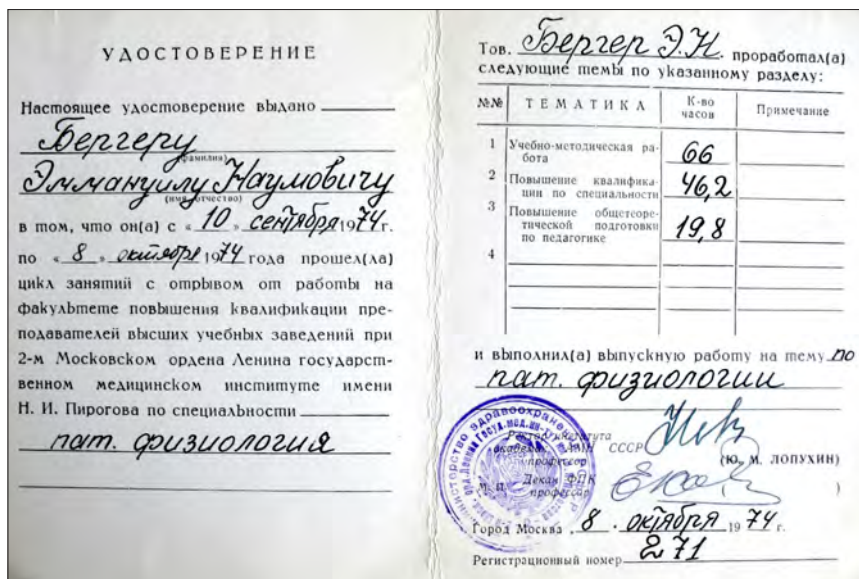 УДОСТОВЕРЕНИЕ
Настоящее удостоверение выдано
Бергеру
(фамилия)
Эммануилу Наумовичу
(имя, отчество)
в том, что он(а) с «10» сентября 1974 г.
по «8» октября 1974 года прошел(ла)
цикл занятий с отрывом от работы на
факультете повышения квалификации пре-
подавателей высших учебных заведений при
2-м Московском ордена Ленина государст-
венном медицинском институте имени
Н. И. Пирогова по специальности
пат. физиология
Тов. Бергер Э.Н. проработал(а)
следующие темы по указанному разделу:
№№ ТЕМАТИКА К-во часов Примечание
1 Учебно-методическая ра-
бота 66
2 Повышение квалифика-
ции по специальности 46,2
3 Повышение общетеоре-
тической подготовки
по педагогике 19,8
4
и выполнил(а) выпускную работу на тему по
пат. физиологии
Ректор института
академик АМН СССР
профессор
(Ю. М. ЛОПУХИН)
М. П. Декан ФПК
профессор )
Город Москва «8» октября 1974 г.
Регистрационный номер 271